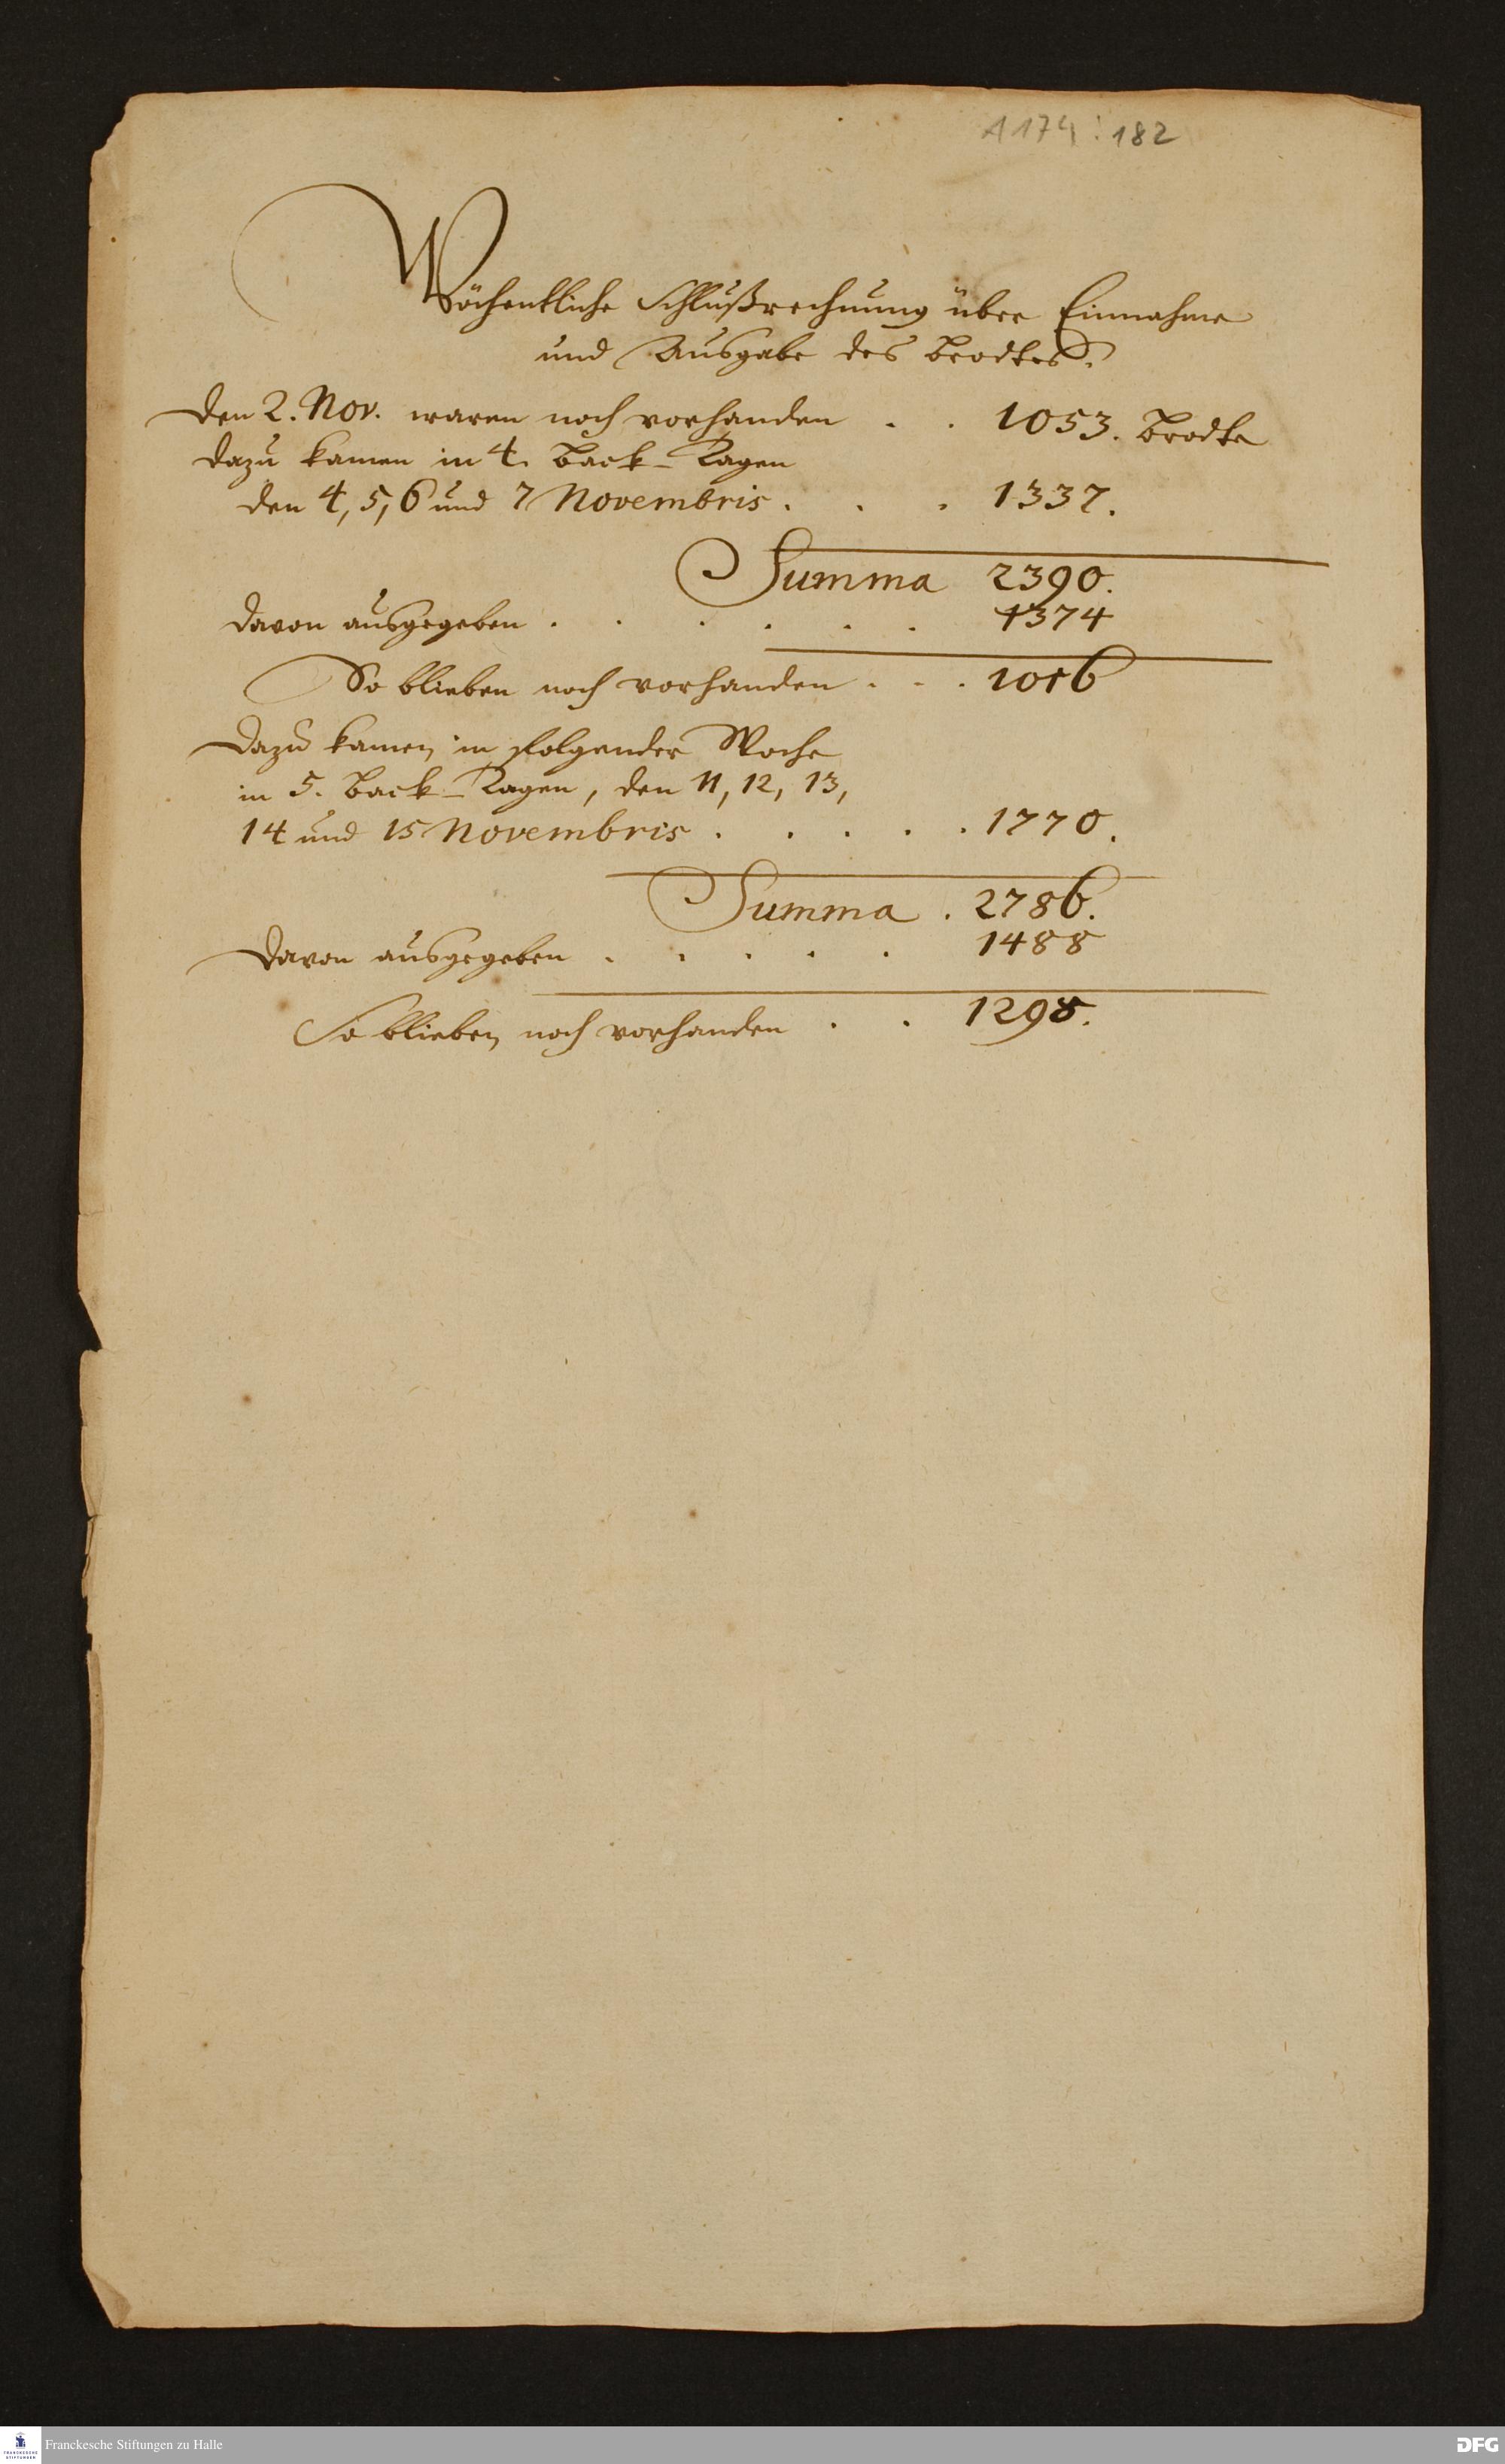 A 174 : 182
Wöchentliche Schlußrechnung über Einnahme
und Ausgabe des Brodtes.
Den 2. Nov. waren noch vorhanden . . 1053. Brodte
dazu kamen in 4. Back-Tagen
den 4, 5, 6 und 7 Novembris . . . 1337.
Summa 2390.
davon ausgegeben . . . . . . 1374
So blieben noch vorhanden . . . 1016
Dazu kamen in folgender Woche
in 5. Back-Tagen, den 11, 12, 13,
14 und 15 Novembris . . . . . 1770.
Summa . 2786.
Davon ausgegeben . . . . . 1488
So blieben noch vorhanden . . 1298.
FRANCKESCHE STIFTUNGEN
Franckesche Stiftungen zu Halle
DFG